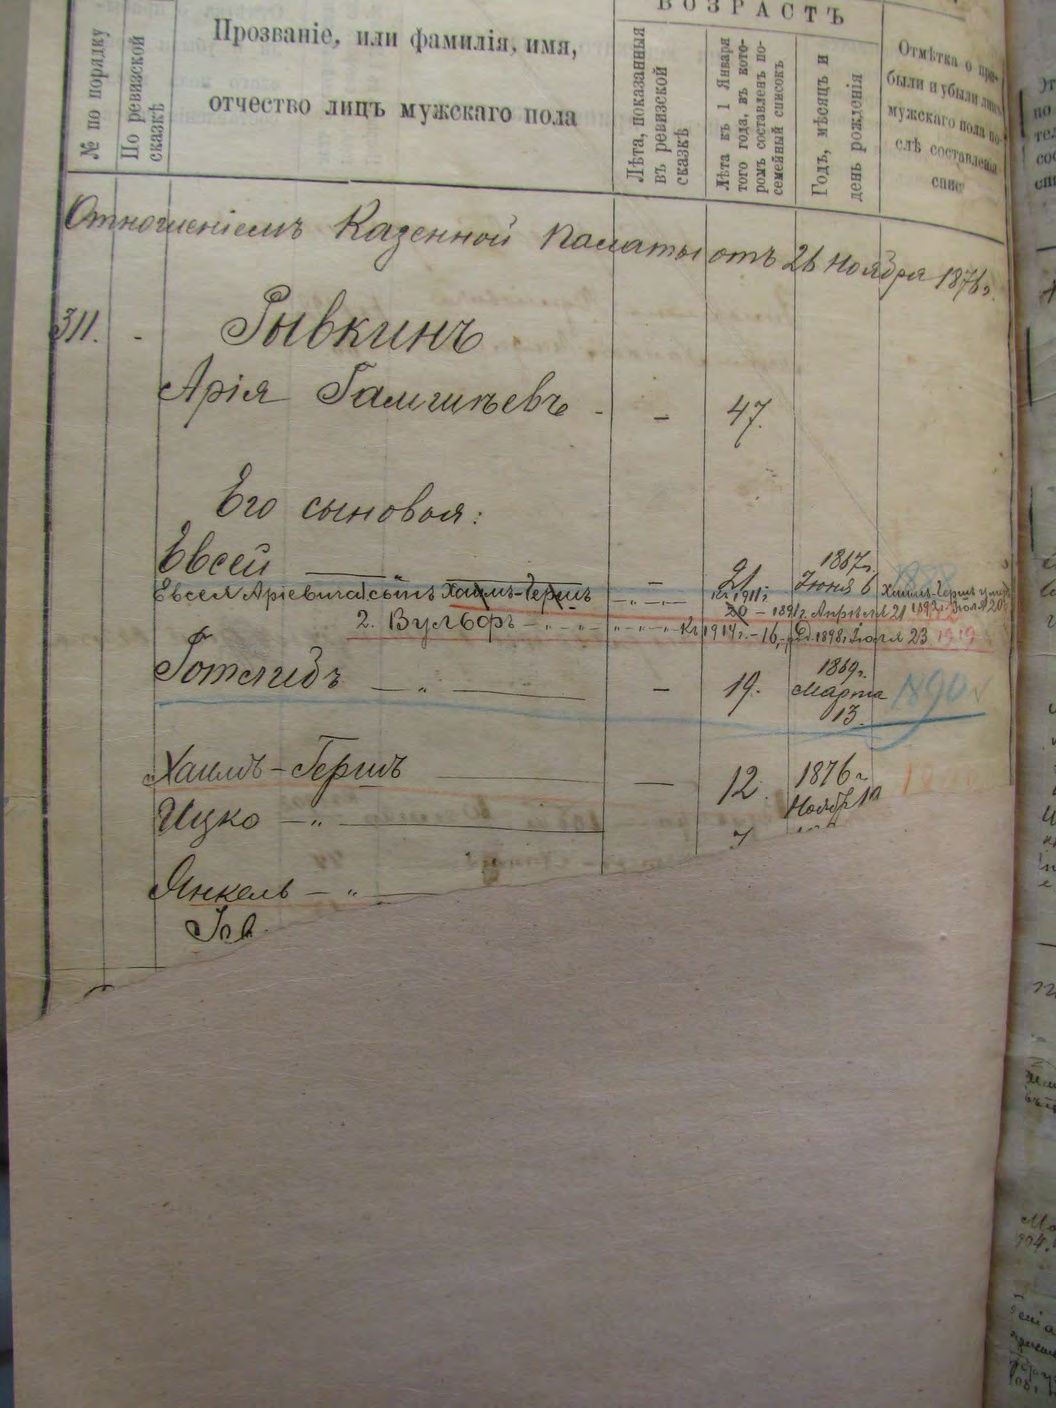 ВОЗРАСТЪ
№ по порядку
По ревизской сказкѣ
Прозваніе, или фамилія, имя,
отчество лицъ мужскаго пола
Лѣта, показанныя въ ревизской сказкѣ
Лѣта къ 1 Января того года, въ которомъ составленъ посемейный списокъ
Годъ, мѣсяцъ и день рожденія
Отмѣтка о при-
были и убыли лицъ
мужскаго пола по-
слѣ составленія
спис
Отношеніемъ Казенной Палаты отъ 26 Ноября 1876 г.
311. - Рывкинъ
Арія Гамшѣевъ - - 47.
Его сыновья:
Евсей — „ — - 21 1867 г. Іюня 6 1888
Евсея Аріевича 1 сынъ Хаимъ-Гершъ - „ - „ - къ 1911 г. 20 - 1891 г. Апрѣля 21 Хаимъ-Гершъ 1892 г. Іюля 20
2. Вульфъ - „ - „ - „ - „ - „ - Къ 1914 г. - 16, - Р. 1898 г. Іюля 23 1919
Готлибъ — „ — - 19. 1869 г. Марта 13. 1890
Хаимъ-Гершъ — - 12. 1876 г. Ноября
Ицко - „ - 7
Янкель - „ -